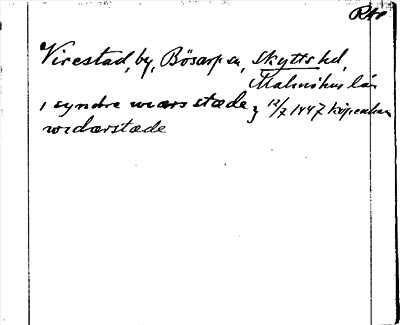 RAp
Virestad, by, Bösarp sn, Skytts hd,
Malmöhus län
i syndre wærs stæde 12/7 1447 Köpenhamn
wrdærstæde